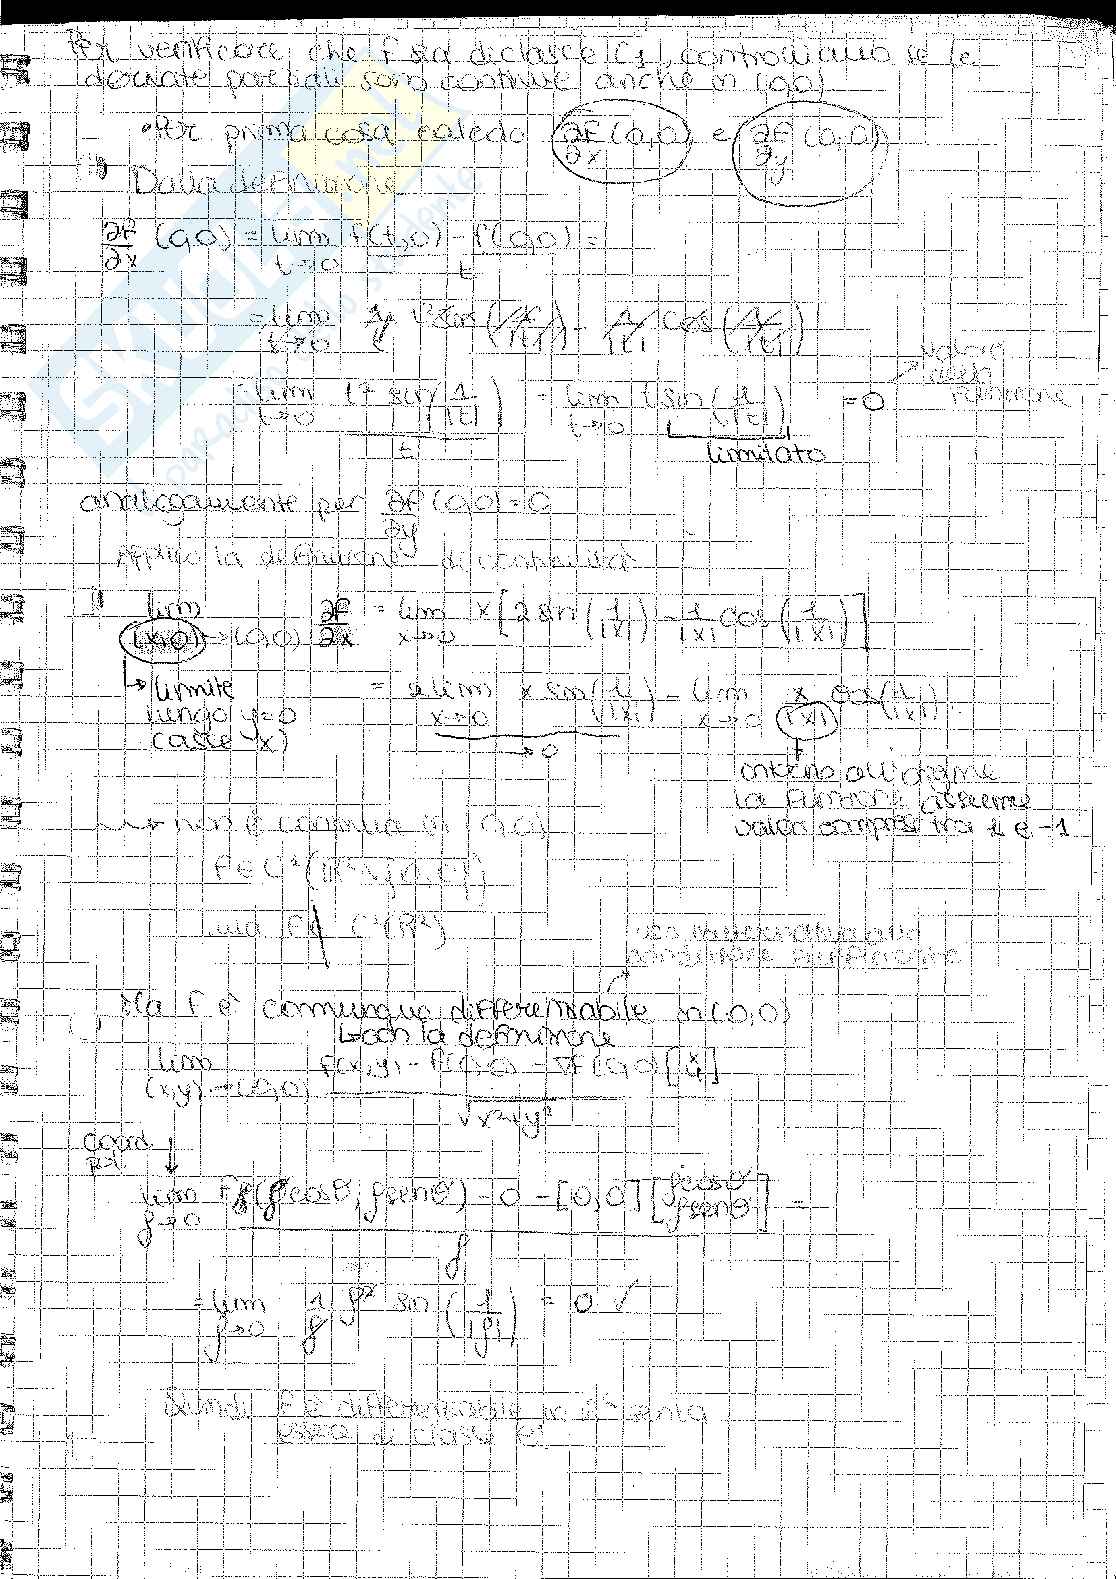 Per verificare che f sia di classe C1, controlliamo se le
derivate parziali sono continue anche in (0,0)
• Per prima cosa calcolo ∂f/∂x (0,0) e ∂f/∂y (0,0)
Dalla definizione
∂f/∂x (0,0) = lim t→0 f(t,0) - f(0,0) / t =
= lim t→0
lim t→0 t² sin(1/|t|) / t = lim t→0 t sin(1/|t|) = 0
valore
limitato
analogamente per ∂f/∂y (0,0) = 0
Applico la definizione di continuità
lim (x,0)→(0,0) ∂f/∂x = lim x→0 x[2 sin(1/|x|) - 1/|x| cos(1/|x|)]
↳ limite
lungo y=0
(asse x)
= 2 lim x→0 x sin(1/|x|) - lim x→0 x/|x| cos(1/|x|)
→0
intorno all'origine
la funzione assume
valori compresi tra 1 e -1
→ non è continua in (0,0)
ma f
Ma f è comunque differenziabile in (0,0)
↳ con la definizione
lim (x,y)→(0,0) f(x,y) - f(0,0) - ∇f(0,0)[x y] / √x²+y²
coord
lim ρ→0 f(ρcosθ, ρsenθ) - 0 - [0,0][ρcosθ ρsenθ] / ρ =
= lim ρ→0 1/ρ ρ² sin(1/|ρ|) = 0 ✓
Quindi f è differenziabile in R² senza
essere di classe C¹